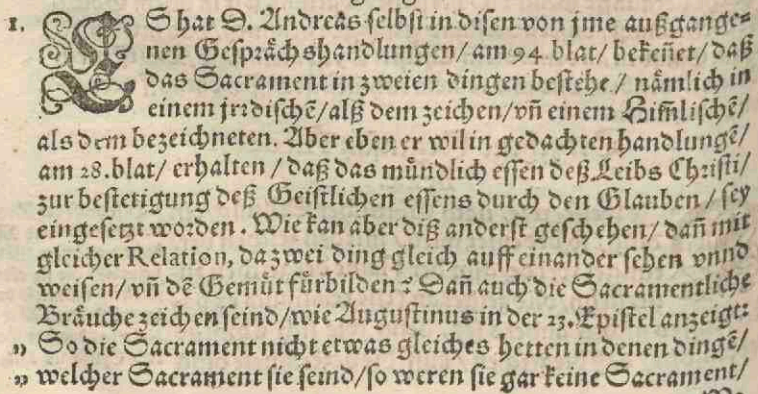 1. ES hat D. Andreas selbst in disen von jme außgange⸗
nen Gesprächshandlungen/ am 94. blat/ bekeñet/ daß
das Sacrament in zweien dingen bestehe/ nämlich in
einem jrrdischẽ/ alß dem zeichen/ vñ einem Himlischẽ/
als dem bezeichneten. Aber eben er wil in gedachten handlungẽ/
am 28. blat/ erhalten/ daß das mündlich essen deß Leibs Christi/
zur bestetigung deß Geistlichen essens durch den Glauben/ sey
eingesetzt worden. Wie kan aber diß anderst geschehen/ dañ mit
gleicher Relation, da zwei ding gleich auff einander sehen vnnd
weisen/ vñ dẽ Gemüt fürbilden? Dañ auch die Sacramentliche
Bräuche zeichen seind/ wie Augustinus in der 23. Epistel anzeigt:
„ So die Sacrament nicht etwas gleiches hetten in denen dingẽ/
„ welcher Sacrament sie seind/ so weren sie gar keine Sacrament/